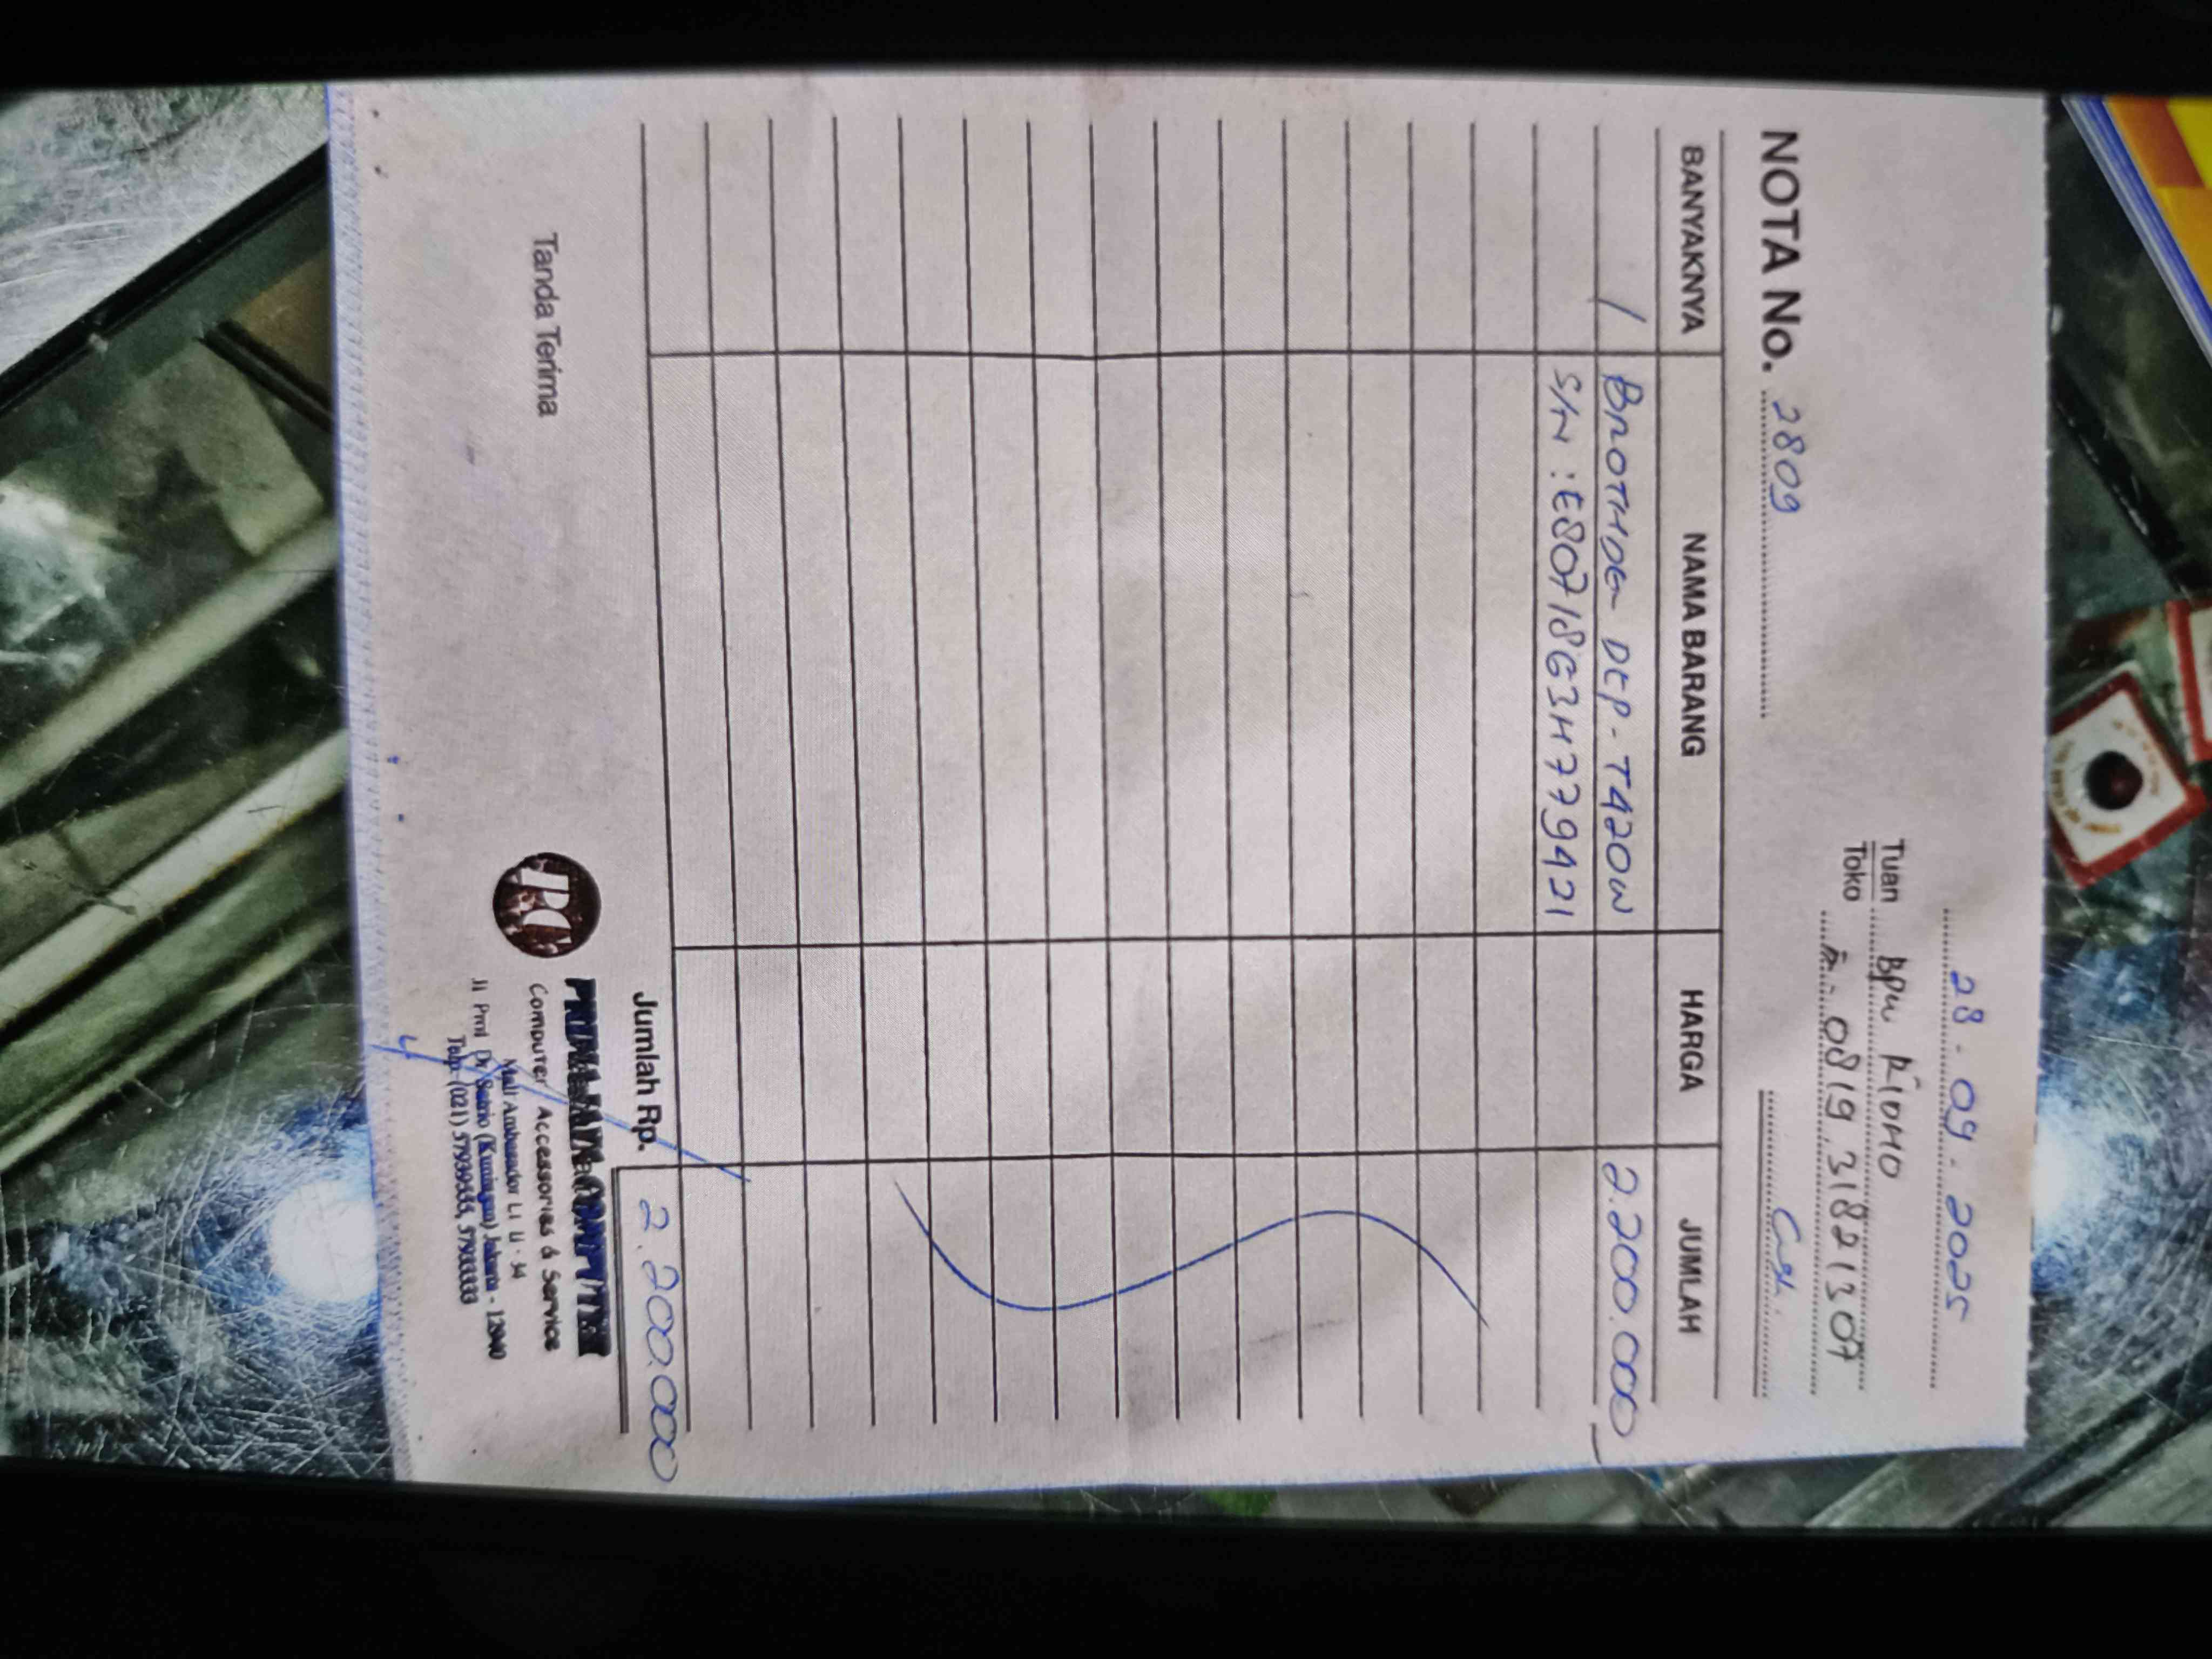 28.09.2025
Tuan Bpk RIDHO
Toko 0819.31821307
NOTA No. 2809 Cash.
BANYAKNYA NAMA BARANG HARGA JUMLAH
1 BROTHER DCP-T420W 2.200.000
S/N : E80718G3H779421
Jumlah Rp. 2.200.000
Tanda Terima
PC
PRIMA JAYA COMPUTER
Computer Accessories & Service
Mall Ambassador Lt
Jl Prof Dr Satrio (Kuningan) Jakarta - 12940
Telp (021)